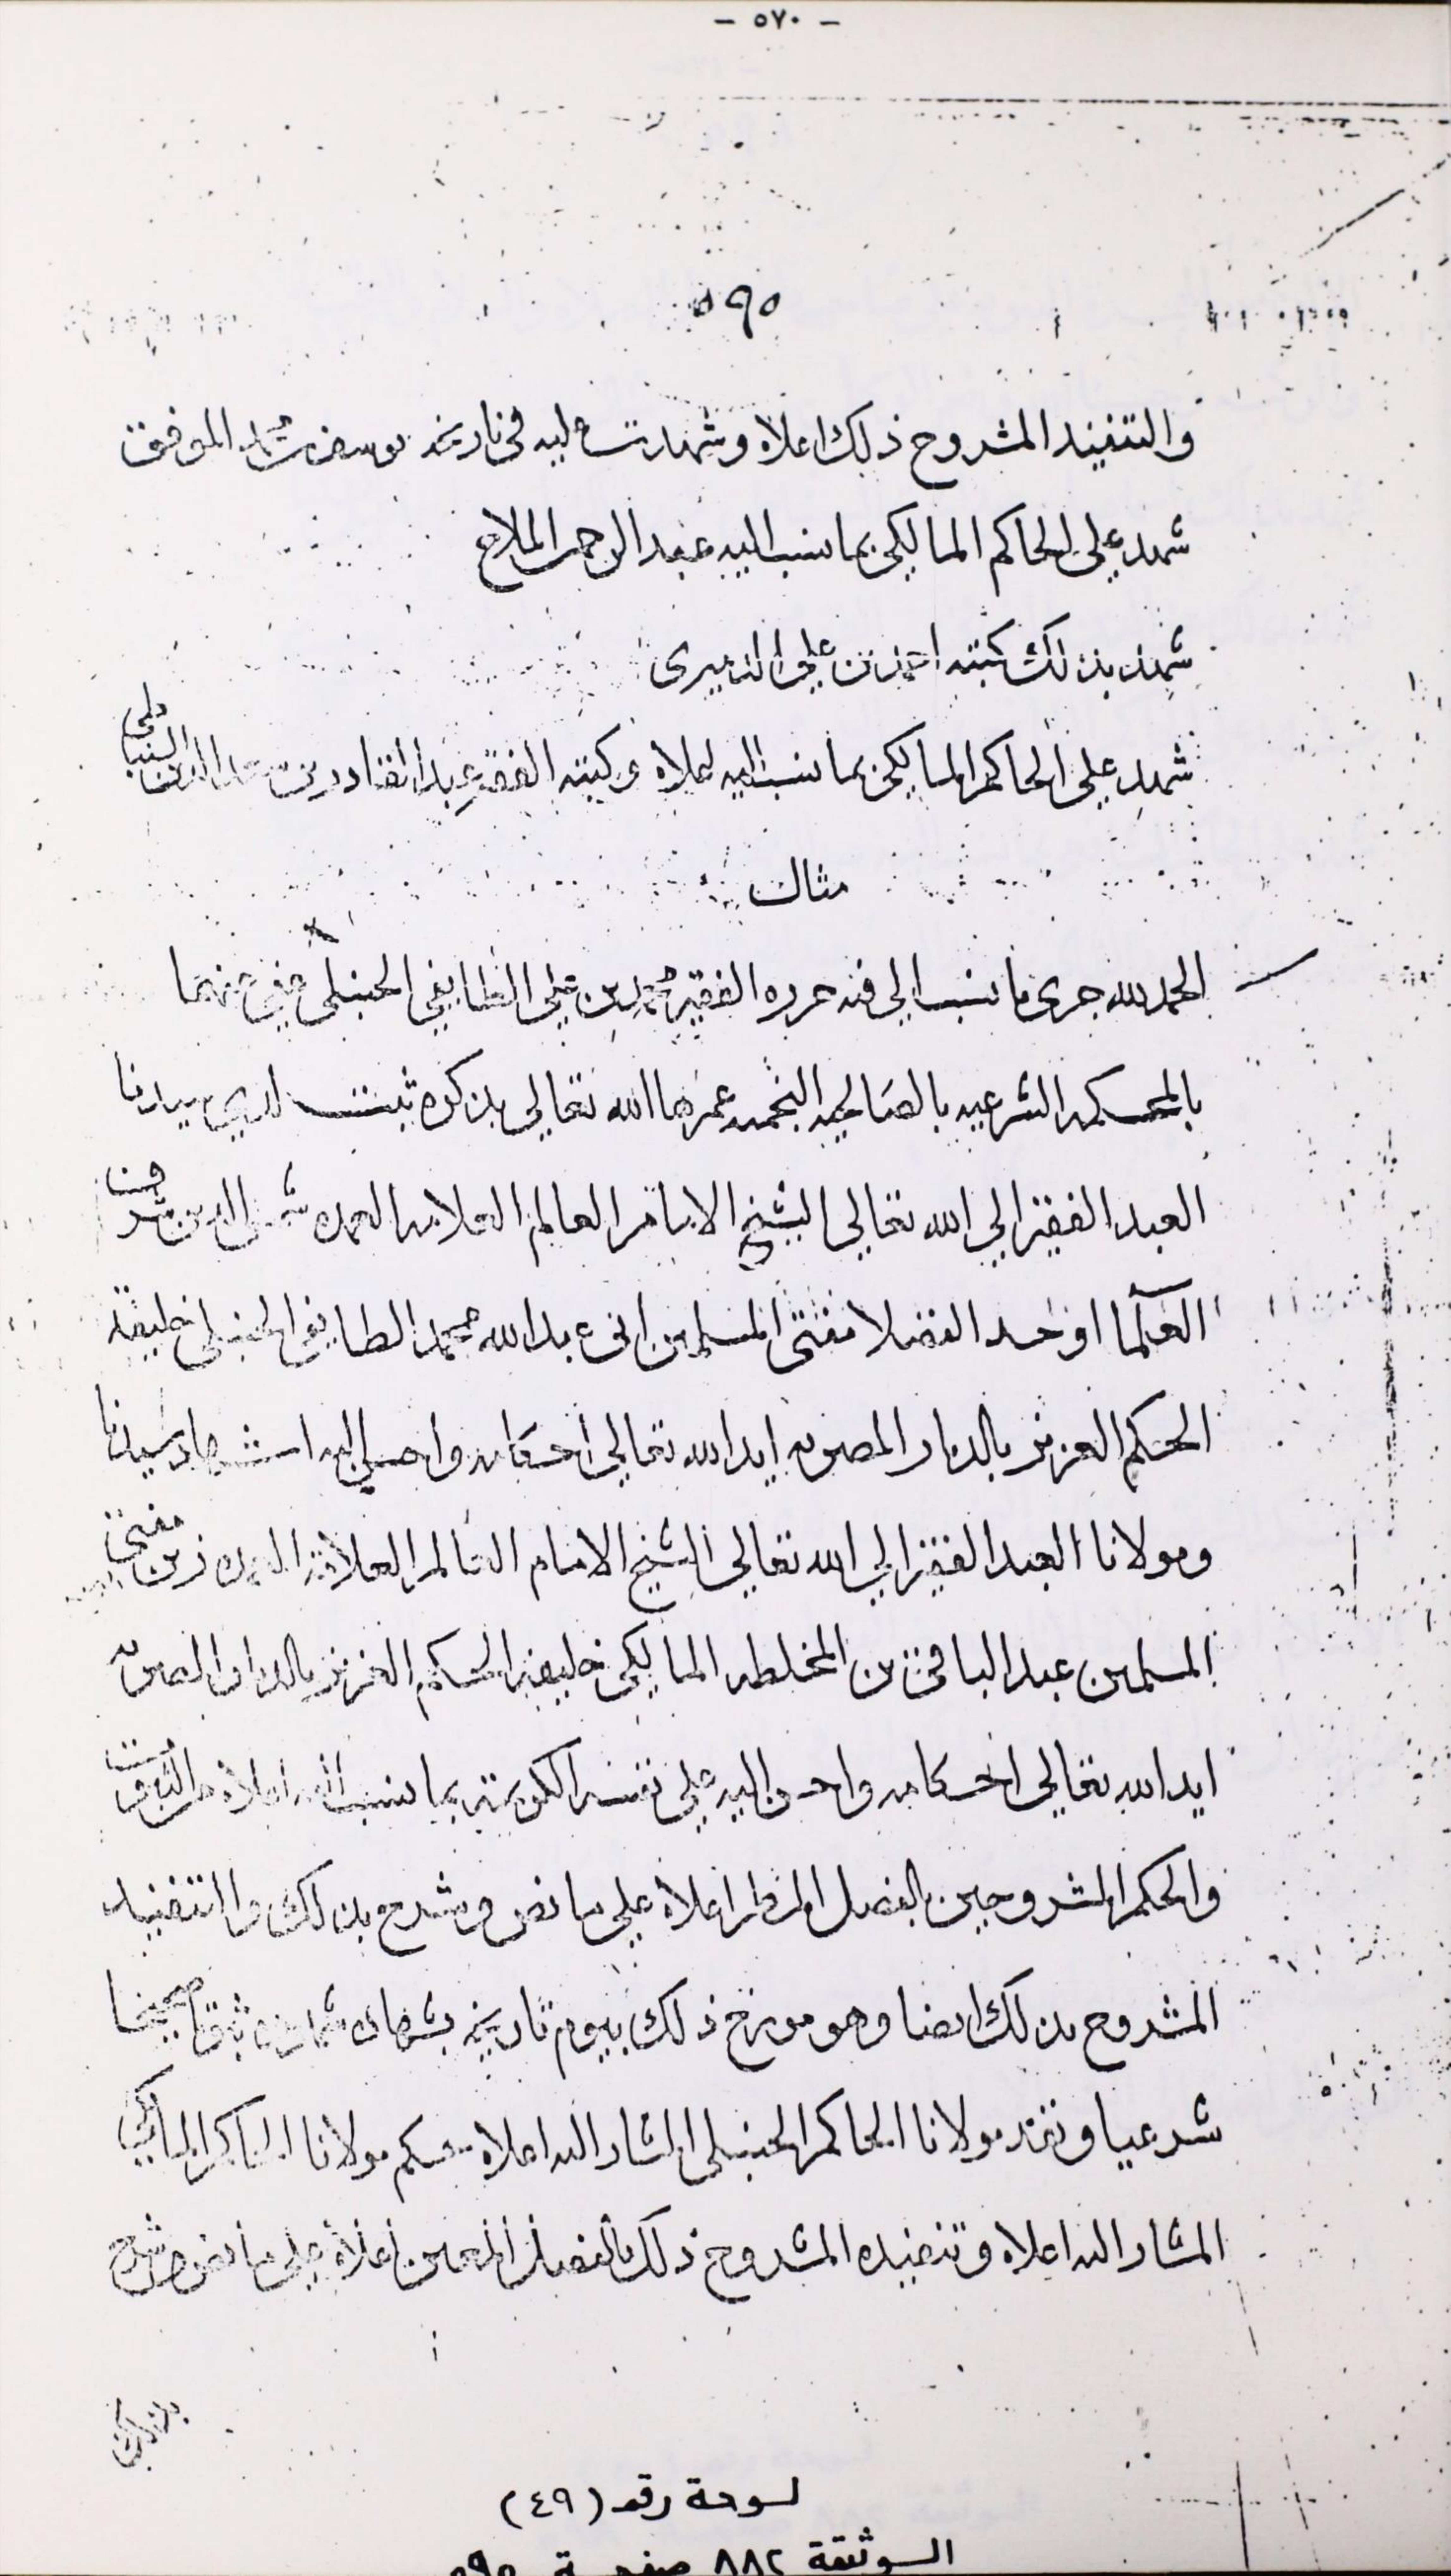 - ٥٧٠ -
٥٩٥
والتنفيد المشروح ذلك اعلاه وشهدت عليه فى تاريخه يوسف بن الموفق
شهد على الحاكم المالكى بما نسب اليه عبد الرحمن الملاح
شهد بذلك كتبه احمد بن على الدميرى
شهد على الحاكم المالكى بما نسب اليه اعلاه وكتبه الفقير عبد القادر بن
مثاله
الحمد لله جرى ما نسب الى فيه حرره الفقير محمد بن على الطايفي الحنبلى عفى عنهما
بالمحكمه الشرعيه بالصالحيه النجميه عمرها الله تعالى بذكره ثبت لدى سيدنا
العبد الفقير الى الله تعالى الشيخ الامام العالم العلامه العمده شمس الدين شرف
العلما اوحد الفضلا مفتى المسلمين ابى عبد الله محمد الطايفي الحنبلى خليفة
الحكم العزيز بالديار المصريه ايد الله تعالى احكامه واحسن اليه اشهاد سيدنا
ومولانا العبد الفقير الى الله تعالى الشيخ الامام العالم العلامة العمده زين مفتى
المسلمين عبد الباقى بن المخلطه المالكى خليفه الحكم العزيز بالديار المصريه
ايد الله تعالى احكامه واحسن اليه على نفسه الكريمة بما نسب اليه اعلاه من الثبوت
والحكم المشروحين بالفصل المسطر اعلاه على ما نص وشرح بذلك والتنفيد
المشروح بذلك ايضا وهو مورخ ذلك بيوم تاريخه بشهادة شهوده ثبوتا صحيحا
شرعيا ونفذ مولانا الحاكم الحنبلى المشار اليه اعلاه حكم مولانا الحاكم المالكي
المشار اليه اعلاه وتنفيده المشروح ذلك بالفصل المعين اعلاه على ما نص وشرح
لوحة رقم (٤٩)
الوثيقة ٨٨٢ صفحة ٥٩٥